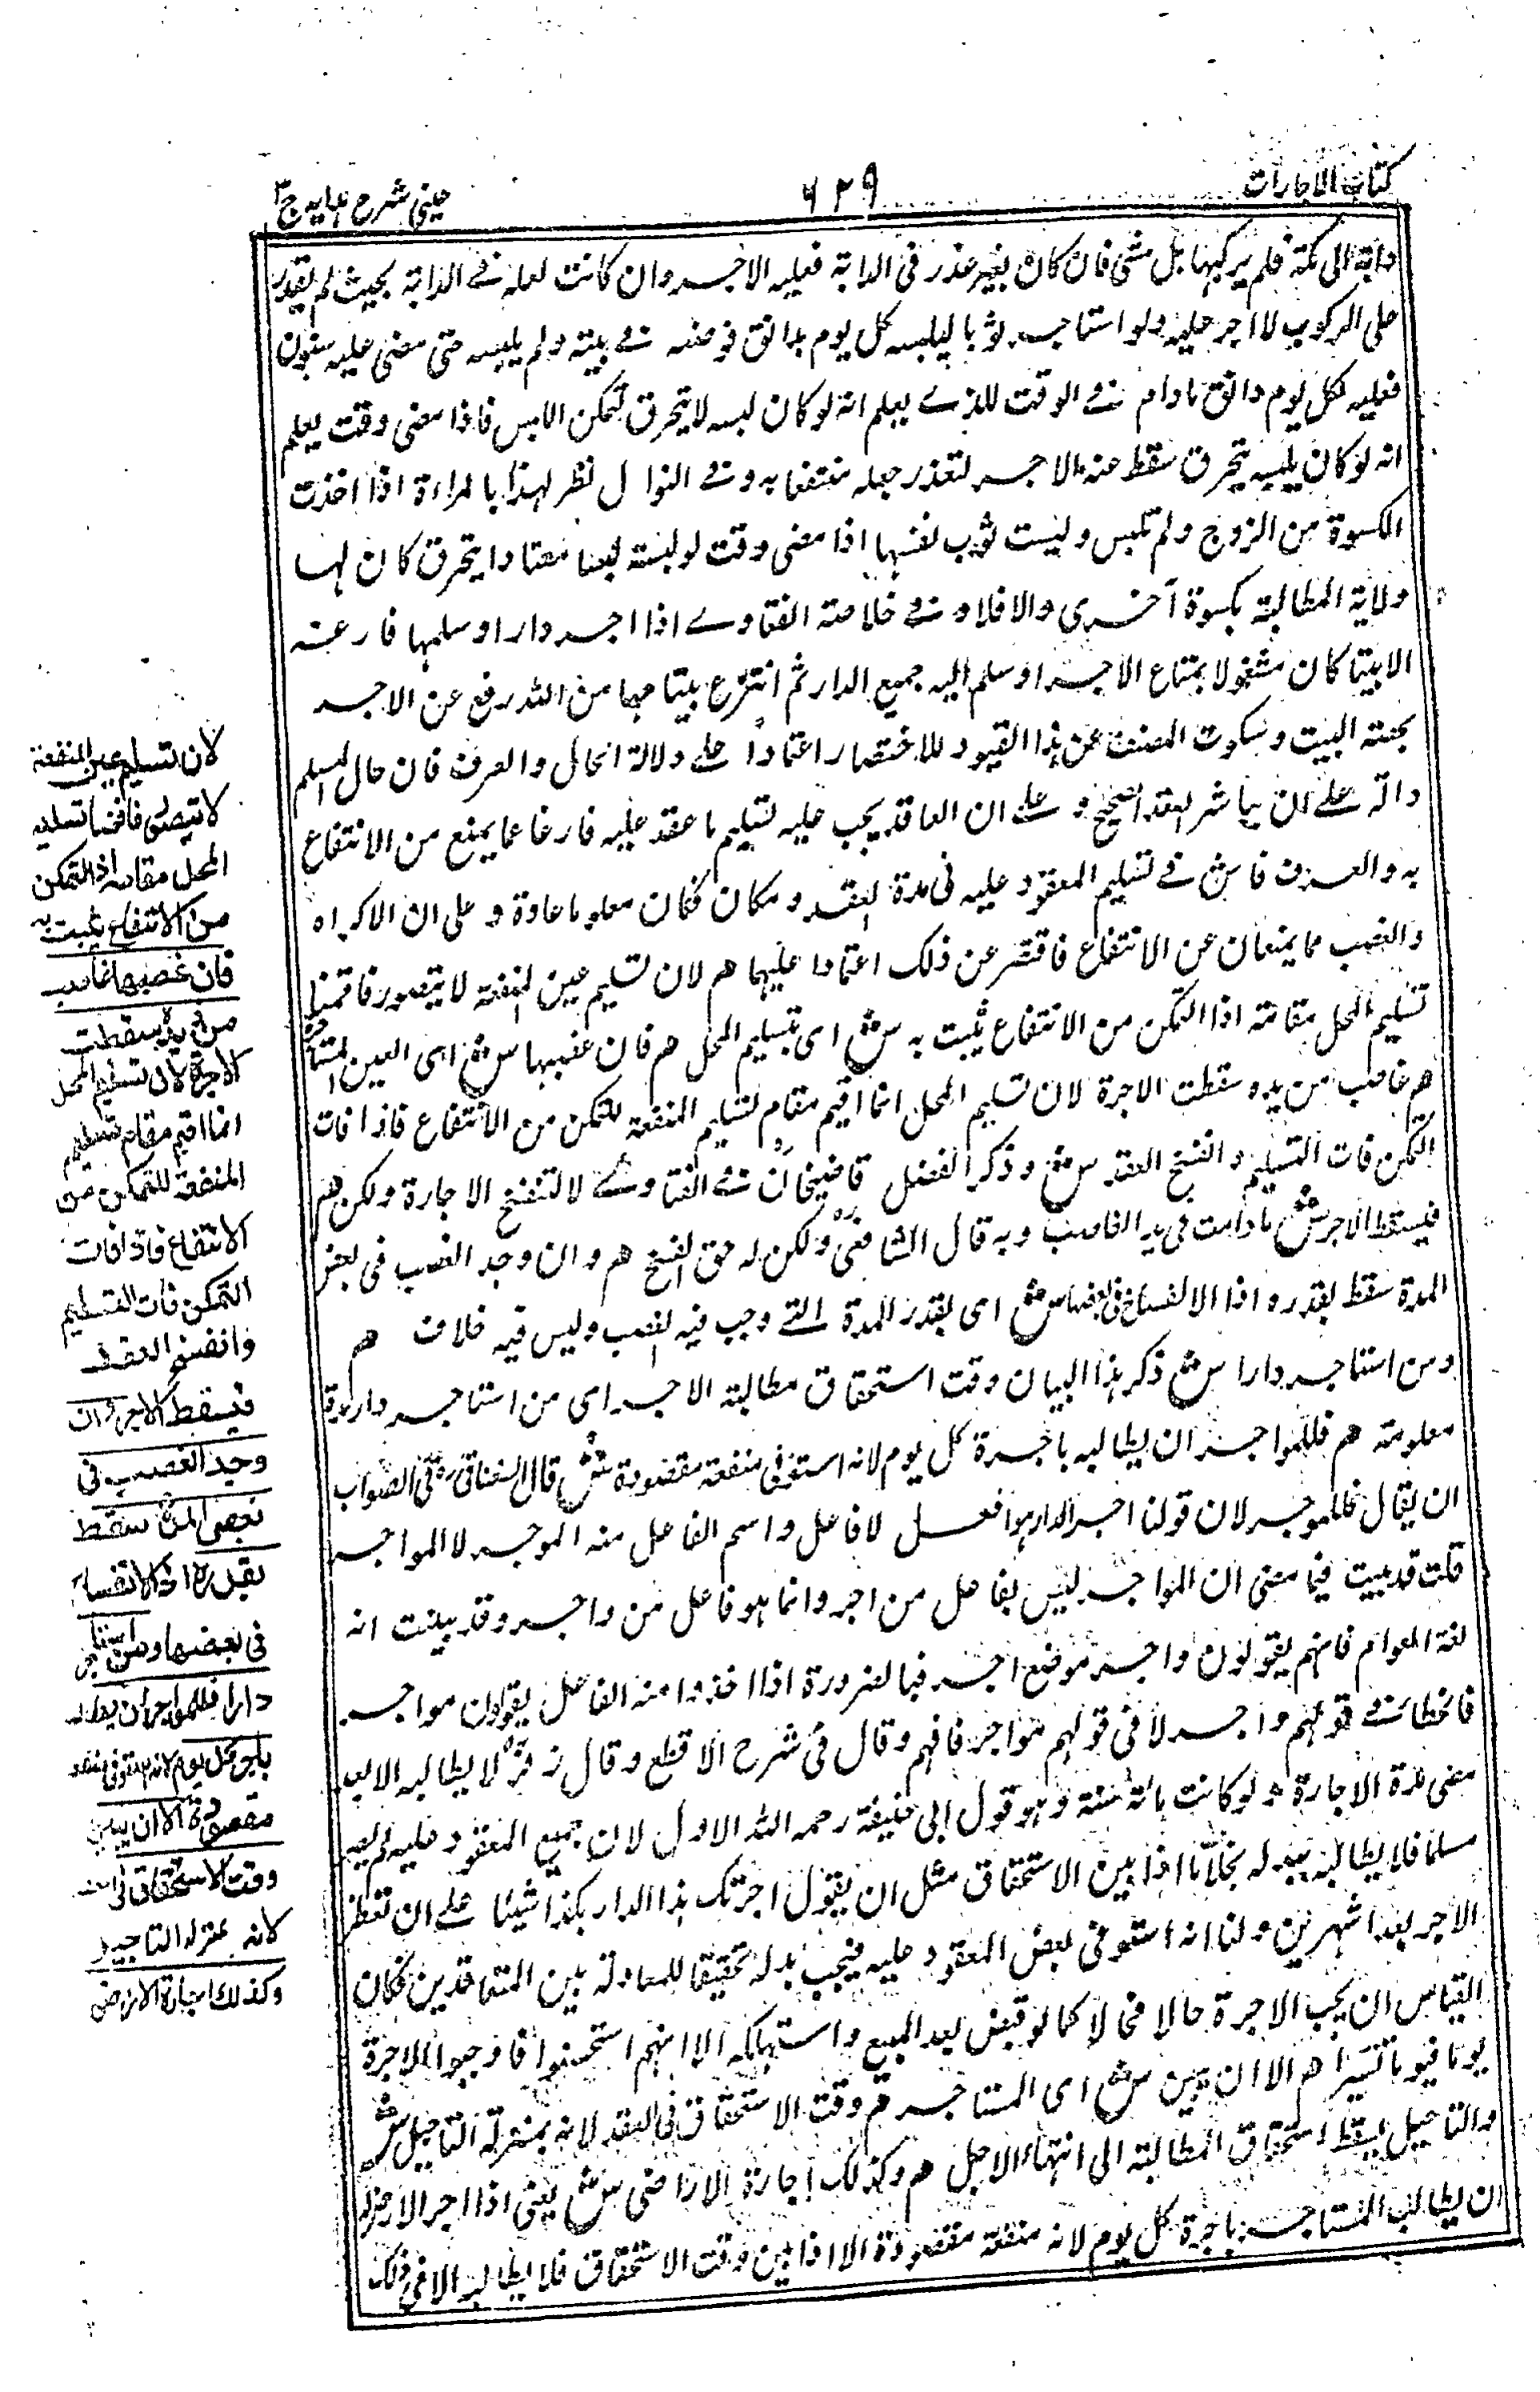 كتاب الاجارات
٦٢٩
عيني شرح هدايه ج ٣
دابة الى مكة فلم يركبها بل مشى فان كان بغير عذر فى الدابة فعليه الاجر وان كانت لعلة فے الدابة بحيث لم يقدر
على الركوب لا اجر عليه ولو استاجر ثوبا ليلبسه كل يوم بدانق فوضعه فے بيته ولم يلبسه حتى مضى عليه سنون
فعليه لكل يوم دانق مادام فے الوقت الذے يعلم انه لو كان لبسه لا يتخرق لتمكن اللبس فاذا مضى وقت يعلم
انه لو كان يلبسه يتخرق سقط عنه الاجر لتعذر جعله منتفعا به و فے النوازل نظر لهذا بالمراءة اذا اخذت
الكسوة من الزوج ولم تلبس ولبست ثوب نفسها اذا مضى وقت لو لبسته لبسا معتادا يتخرق كان لها
ولاية المطالبة بكسوة اخرى والا فلا و فے خلاصة الفتاوے اذا اجر دارا وسلمها فارغة
الا بيتا كان مشغولا بمتاع الاجر او سلم اليه جميع الدار ثم انتزع بيتا منها من الدار رفع عن الاجر
بحصة البيت وسكوت المصنف عن هذا القيود للاختصار اعتمادا علے دلالة الحال والعرف فان حال المسلم
دالة علے ان يباشر العقد الصحيح و علے ان العاقد يجب عليه تسليم ما عقد عليه فارغا عما يمنع من الانتفاع
به والعرف فاش فے تسليم المعقود عليه فى مدة العقد و مكان فكان معلوما عادة و على ان الاكراه
والغصب مما يمنعان عن الانتفاع فاقتصر عن ذلك اعتمادا عليهما هم لان تسليم عين المنفعة لا يتصور فاقمنا
تسليم المحل مقامه اذا التمكن من الانتفاع يثبت به ش اى بتسليم المحل هم فان غصبها ش اى العين المستاجرة
هم غاصب من يده سقطت الاجرة لان تسليم المحل انما اقيم مقام تسليم المنفعة للتمكن من الانتفاع فاذا فات
التمكن فات التسليم وانفسخ العقد ش و ذكر الفضل قاضيخان فے الفتاوے لا تنفسخ الاجارة ولكن هم
فيسقط الاجر ش ما دامت فى يد الغاصب وبه قال الشافعى ولكن له حق الفسخ هم وان وجد الغصب فى بعض
المدة سقط بقدره اذا الانفساخ فى بعضها ش اى بقدر المدة التے وجب فيه الغصب وليس فيه خلاف هم
ومن استاجر دارا ش ذكر هذا البيان وقت استحقاق مطالبة الاجر اى من استاجر دارا مدة
معلومة هم فللمواجر ان يطالبه باجرة كل يوم لانه استوفى منفعة مقصودة ش قال السغناقى فى الصواب
ان يقال فللموجر لان قولنا اجر الدار هو افعل لا فاعل واسم الفاعل منه الموجر لا المواجر
قلت قد بينت فيما مضى ان المواجر ليس بفاعل من اجر وانما هو فاعل من واجر وقد بينت انه
لغة العوام فانهم يقولون واجر موضع اجر فبالضرورة اذا اخذوا منه الفاعل يقولون مواجر
فالخطا فے قولهم واجر لا فى قولهم مواجر فافهم وقال فى شرح الاقطع وقال زفر لا يطالبه الا بعد
مضى مدة الاجارة ولو كانت مائة سنة وهو قول ابى حنيفة رحمه الله الاول لان جميع المعقود عليه لم يصر
مسلما فلا يطالبه ببدله بخلاف ما اذا بين الاستحقاق مثل ان يقول اجرتك هذا الدار بكذا شيئا علے ان تعطى
الاجر بعد شهرين ولنا انه استوفى بعض المعقود عليه فيجب بدله تحقيقا للمعادلة بين المتعاقدين فكان
القياس ان يجب الاجرة حالا فحالا كما لو قبض بعد المبيع واستهلكه الا انهم استحسنوا فاوجبوا الاجرة
يوما فيوما تيسيرا هم الا ان يبين ش اى المستاجر هم وقت الاستحقاق فى العقد لانه بمنزلة التاجيل ش
والتاجيل يسقط استحقاق المطالبة الى انتهاء الاجل هم وكذلك اجارة الاراضى ش يعنى اذا اجر الارض له
ان يطالب المستاجر باجرة كل يوم لانه منفعة مقصودة الا اذا بين وقت الاستحقاق فلا يطالبه الا فى ذلك
لان تسليم عين المنفعة
لا يتصور فاقمنا تسليم
المحل مقامه اذ التمكن
من الانتفاع يثبت به
فان غصبها غاصب
من يده سقطت
الاجرة لان تسليم المحل
انما اقيم مقام تسليم
المنفعة للتمكن من
الانتفاع فاذا فات
التمكن فات التسليم
وانفسخ العقد
فيسقط الاجر وان
وجد الغصب فى
بعض المدة سقط
بقدره اذ الانفساخ
فى بعضها ومن استاجر
دارا فللمواجر ان يطالبه
باجرة كل يوم لانه استوفى منفعة
مقصودة الا ان يبين
وقت الاستحقاق فى العقد
لانه بمنزلة التاجيل
وكذلك اجارة الاراضى